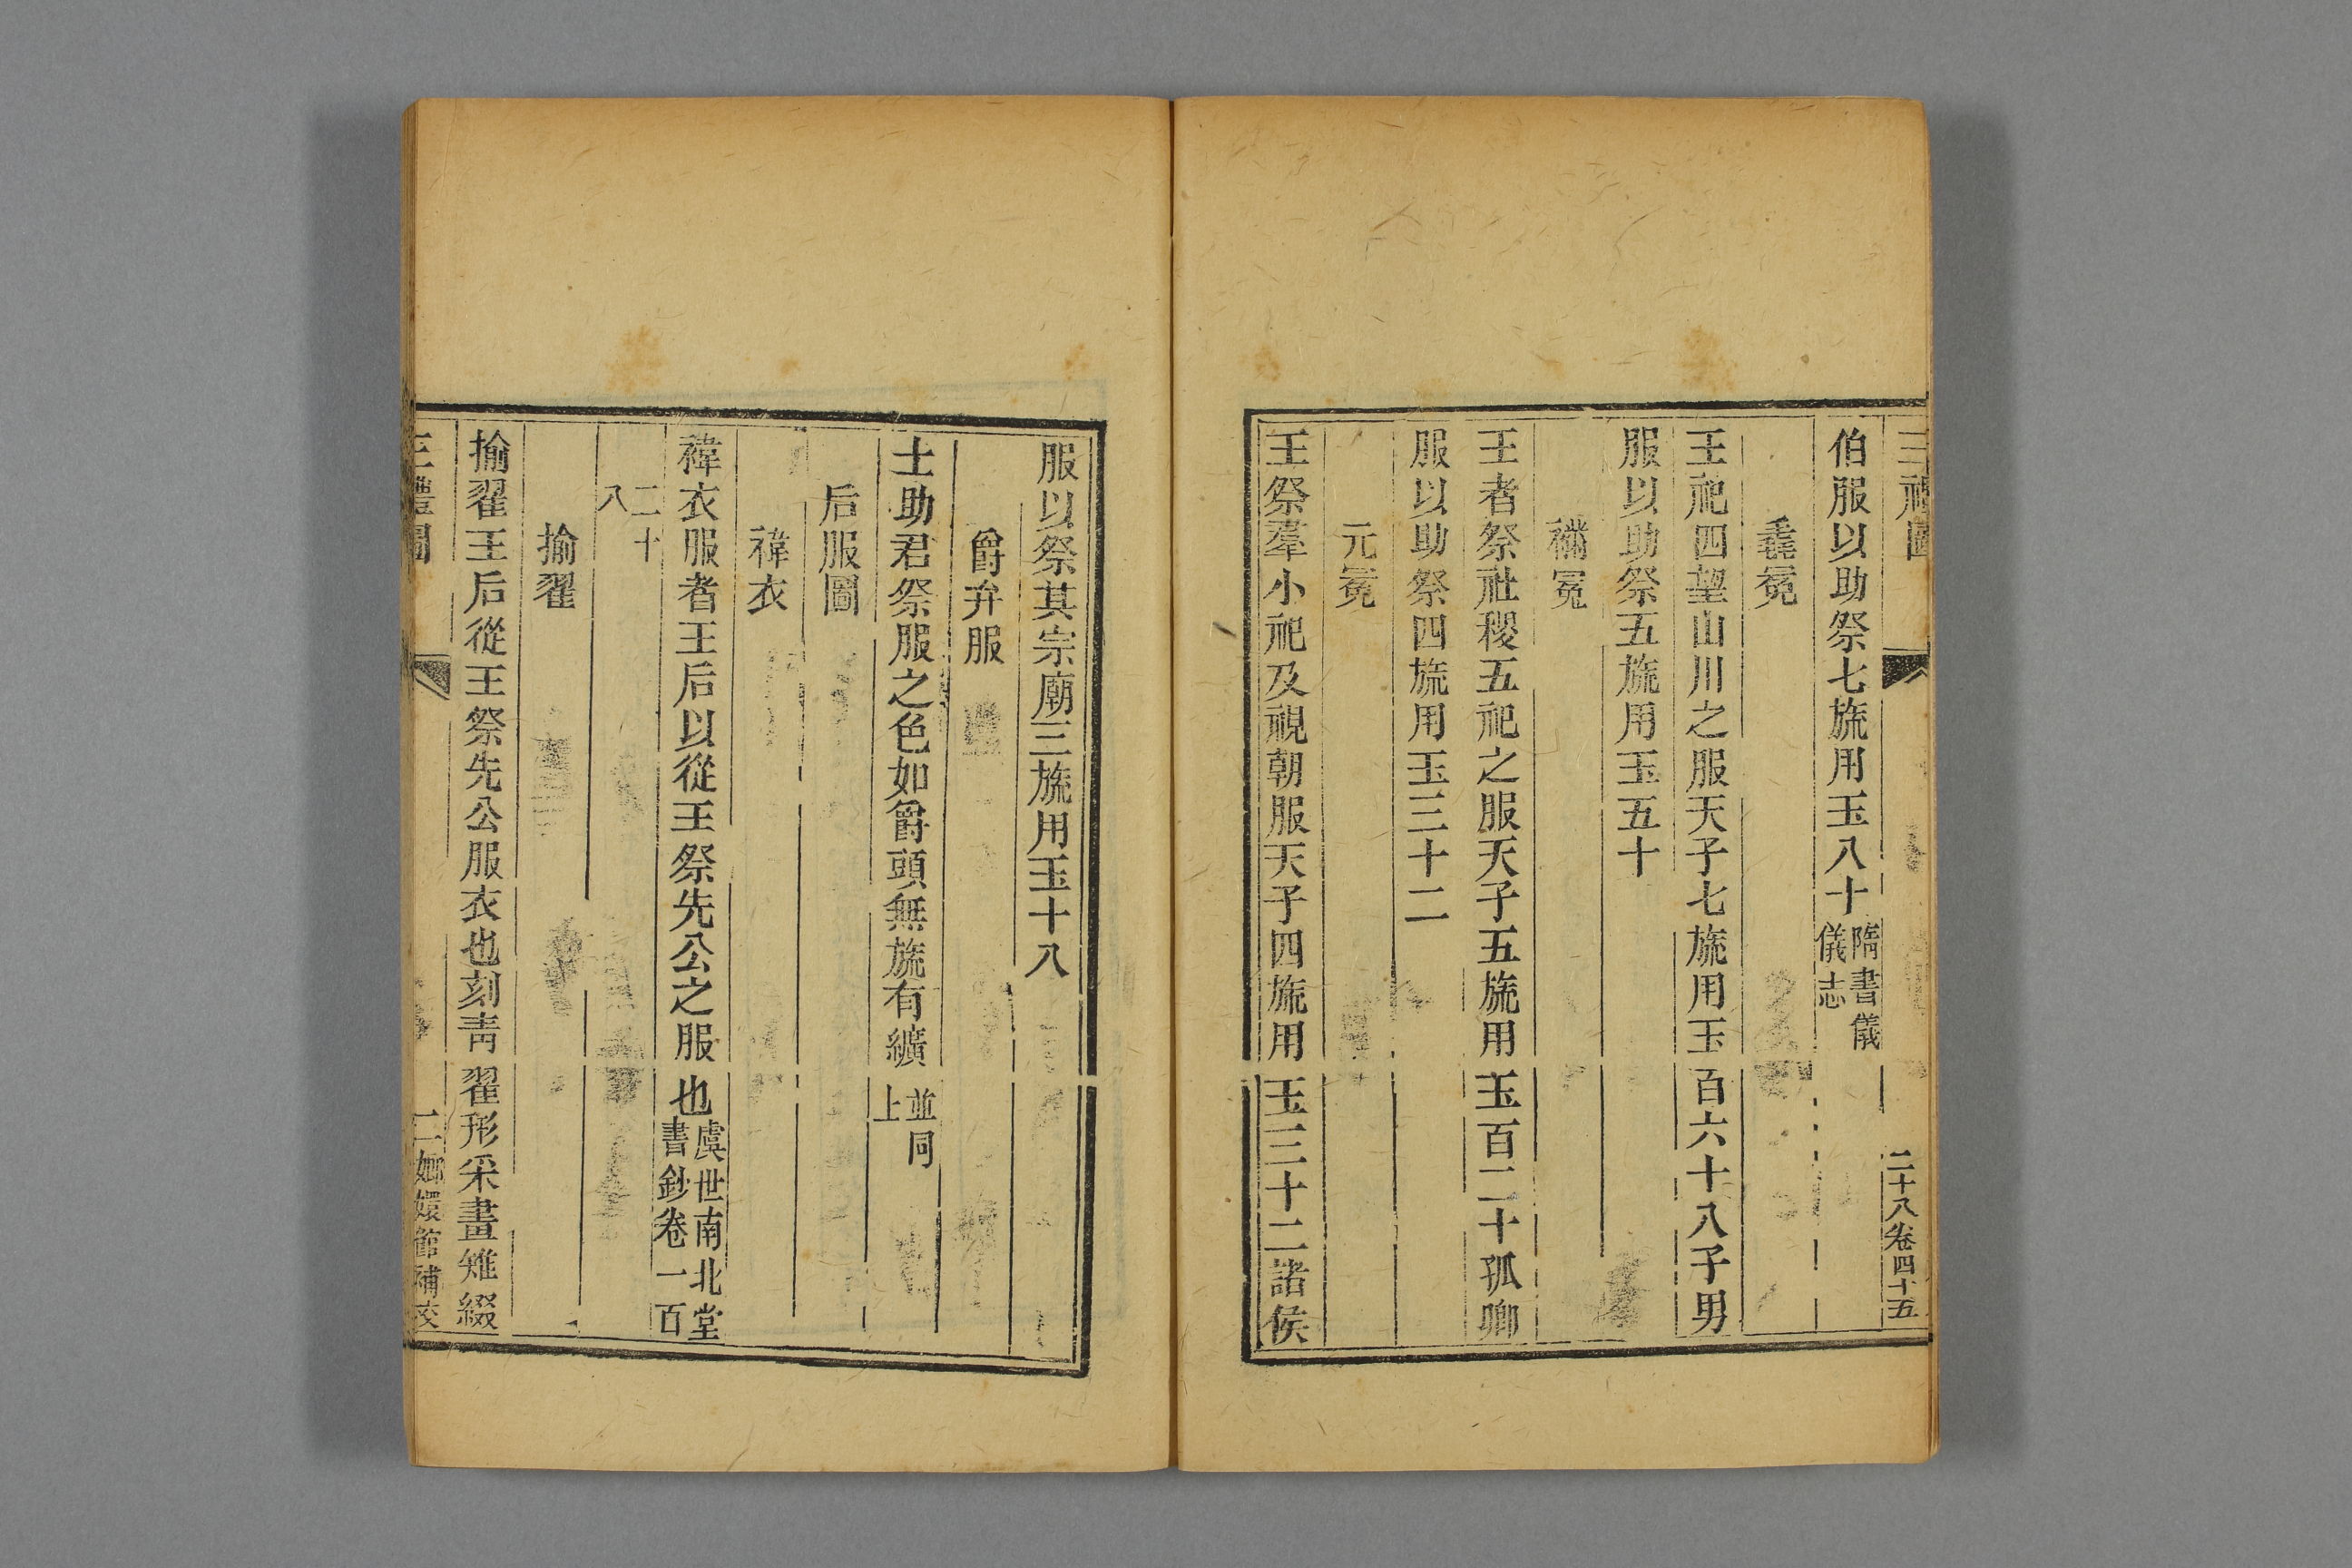 三禮圖 二十八卷四十五
伯服以助祭七旒用玉八十隋書儀儀志
毳冕
王祀四望山川之服天子七旒用玉百六十八子男
服以助祭五旒用玉五十
襧冕
王者祭社稷五祀之服天子五旒用玉百二十孤卿
服以助祭四旒用玉三十二
元冕
王祭羣小祀及視朝服天子四旒用玉三十二諸侯
服以祭其宗廟三旒用玉十八
爵弁服
士助君祭服之色如爵頭無旒有纊並同上
后服圖
褘衣
褘衣服者王后以從王祭先公之服也虞世南北堂書鈔卷一百
二十八
揄翟
揄翟王后從王祭先公服衣也刻靑翟形采畫雉綴
三禮圖 二 嫏嬛館補校